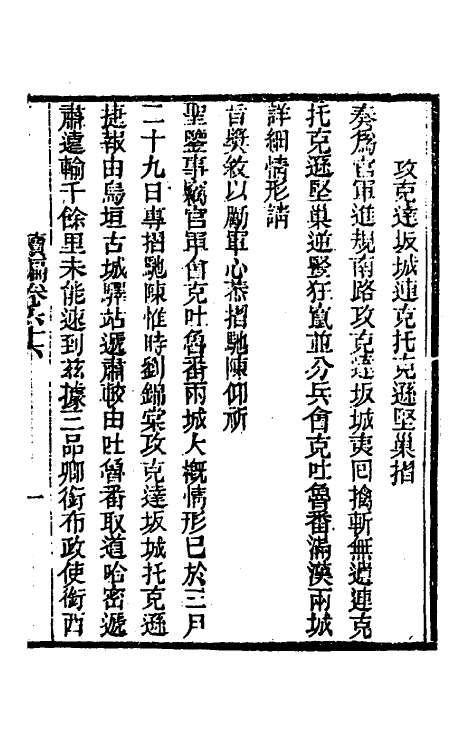 攻克達坂城連克托克遜堅巢摺
奏爲官軍進規南路攻克達坂城夷回擒斬無遺連克
托克遜堅巢逆豎狂竄並分兵會克吐魯番滿漢兩城
詳細情形請
旨獎敘以勵軍心恭摺馳陳仰祈
聖鑒事竊官軍會克吐魯番兩城大概情形已於三月
二十九日專摺馳陳惟時劉錦棠攻克達坂城托克遜
捷報由烏垣古城驛站遞肅較由吐魯番取道哈密遞
肅遠輸千餘里未能速到茲據三品卿銜布政使銜西
續編卷六十六
一